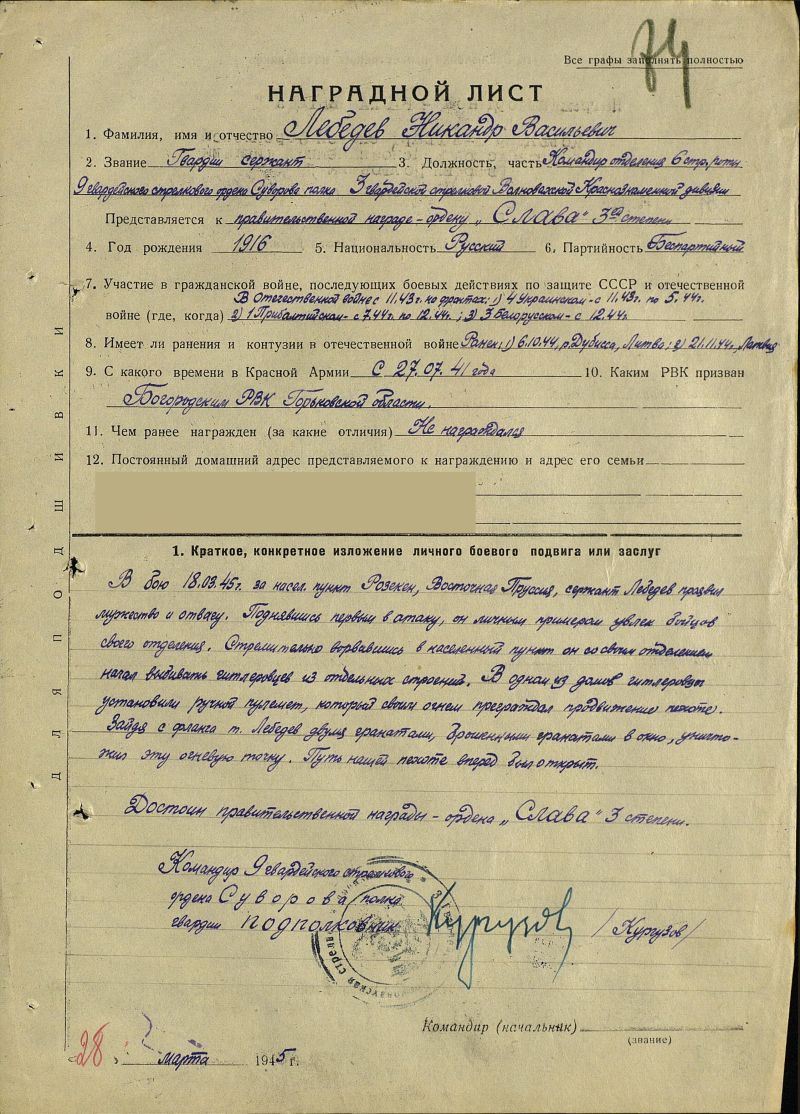 74
Все графы заполнять полностью
НАГРАДНОЙ ЛИСТ
1. Фамилия, имя и отчество Лебедев Никандр Васильевич
2. Звание Гвардии сержант 3. Должность, часть Командир отделения 6 стр. роты
9 гвардейского стрелкового ордена Суворова полка 3 гвардейской стрелковой Волновахской Краснознаменной дивизии
Представляется к правительственной награде - ордену „Слава" 3ей степени
4. Год рождения 1916 5. Национальность Русский 6. Партийность Беспартийный
7. Участие в гражданской войне, последующих боевых действиях по защите СССР и отечественной
В Отечественной войне с 11.43г. на фронтах: 1) 4 Украинском - с 11.43г. по 5.44г.
войне (где, когда) 2) 1 Прибалтийском - с 7.44г. по 12.44г.; 3) 3 Белорусском - с 12.44г.
8. Имеет ли ранения и контузии в отечественной войне Ранен: 1) 6.10.44, р. Дубисса, Литва; 2) 21.11.44г, Латвия
9. С какого времени в Красной Армии С 27.07.41 года 10. Каким РВК призван
Богородским РВК Горьковской области.
11. Чем ранее награжден (за какие отличия) Не награждался
12. Постоянный домашний адрес представляемого к награждению и адрес его семьи
ДЛЯ ПОДШИВКИ
1. Краткое, конкретное изложение личного боевого подвига или заслуг
В бою 18.03.45г. за насел. пункт Розекен, Восточная Пруссия, сержант Лебедев проявил
мужество и отвагу. Поднявшись первым в атаку, он личным примером увлек бойцов
своего отделения. Стремительно ворвавшись в населенный пункт он со своим отделением
начал выбивать гитлеровцев из отдельных строений. В одном из домов гитлеровцы
установили ручной пулемет, который своим огнем преграждал продвижение пехоте.
Зайдя с фланга т. Лебедев двумя гранатами, брошенными гранатами в окно, уничто-
жил эту огневую точку. Путь нашей пехоте вперед был открыт.
Достоин правительственной награды - ордена „Слава" 3 степени.
Командир 9 гвардейского стрелкового
ордена Суворова полка
гвардии подполковник Кургузов /Кургузов/
Командир (начальник)
(звание)
28 марта 1945 г.